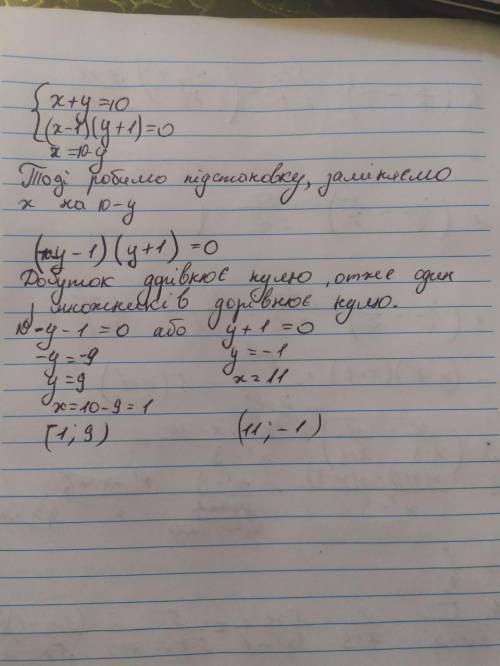 { x+y=10
(x-1)(y+1)=0
x=10-y
Тоді робимо підстановку, заміняємо
x на 10-y
(10-y-1)(y+1)=0
Добуток дорівнює нулю, отже один
з множників дорівнює нулю.
10-y-1=0 або y+1=0
-y=-9 y=-1
y=9 x=11
x=10-9=1
(1;9) (11;-1)